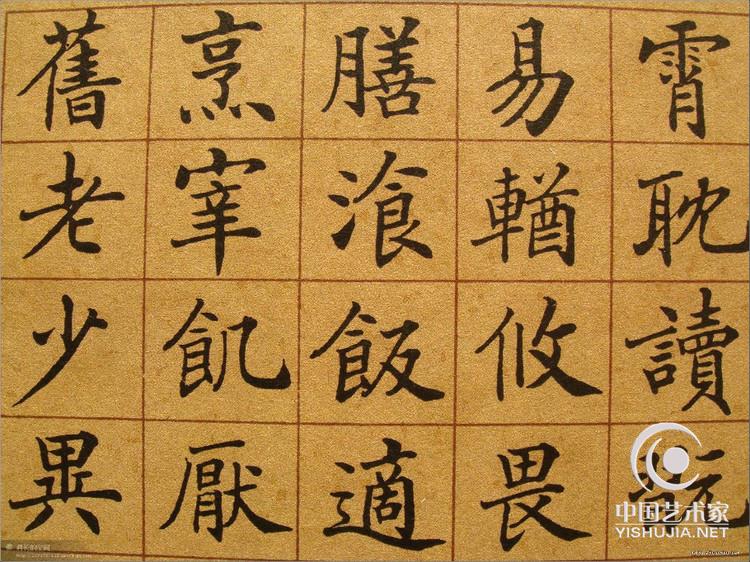 霄耽讀翫
易輶攸畏
膳湌飯適
烹宰飢厭
舊老少異
中国艺术家
YISHUJIA.NET